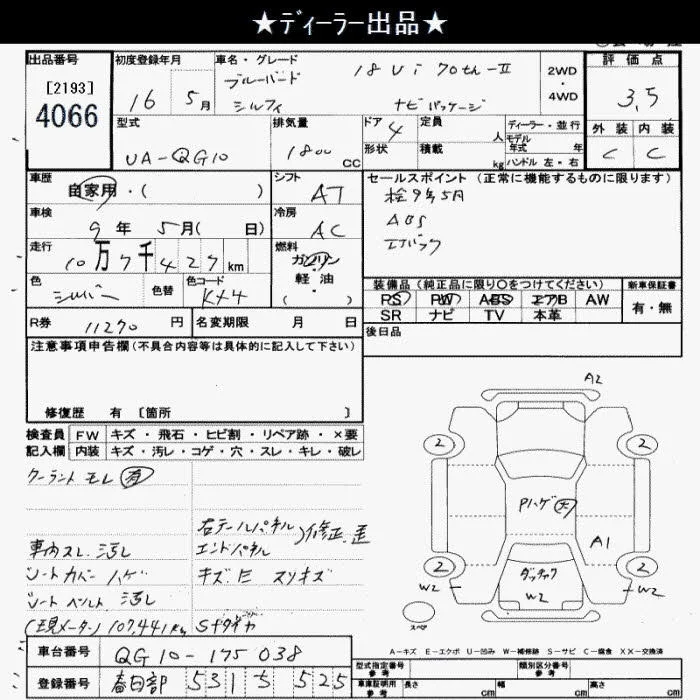 ★ディーラー出品★
出品番号
[2193]
4066
初度登録年月
16年 5月
車名・グレード
ブルーバード
シルフィ
18Vi 70th-II
ナビパッケージ
2WD
・
4WD
評価点
3.5
外装 内装
C C
型式
UA-QG10
排気量
1800 CC
ドア 4
形状
定員 人
積載 kg
ディーラー・並行
モデル年式 年
ハンドル 左・右
車歴
自家用・( )
シフト
AT
セールスポイント (正常に機能するものに限ります)
検9年5月
ABS
エアバック
車検
9年 5月( 日)
冷房
AC
走行
10万7千427km
燃料
ガソリン
・
軽油
( )
色
シルバー
色替
色コード
KX4
装備品 (純正品に限り〇をつけてください)
PS PW ABS エアB AW
SR ナビ TV 本革
新車保証書
有・無
R券 11270円
名変期限 月 日
後日品
注意事項申告欄 (不具合内容等は具体的に記入して下さい)
修復歴 有 〔箇所 〕
検査員記入欄
FW キズ・飛石・ヒビ割・リペア跡・×要
内装 キズ・汚レ・コゲ・穴・スレ・キレ・破レ
クーラントモレ 有
右テールパネル
エンドパネル
修正.歪
車内スレ.汚レ
シートカバーハゲ
キズ.E スリキズ
シートベルト 汚レ
(現メーター)107,441km
A2
2 2
Pハゲ(大)
A1
2 2
W2 W2
ダッチャク
W2
スペア
A-キズ E-エクボ U-凹み W-補修跡 S-サビ C-腐食 XX-交換済
車台番号
QG10-175038
登録番号
春日部 531 ち 525
型式指定番号
参考
類別区分番号
参考
車庫証明用
参考
長さ cm 幅 cm 高さ cm